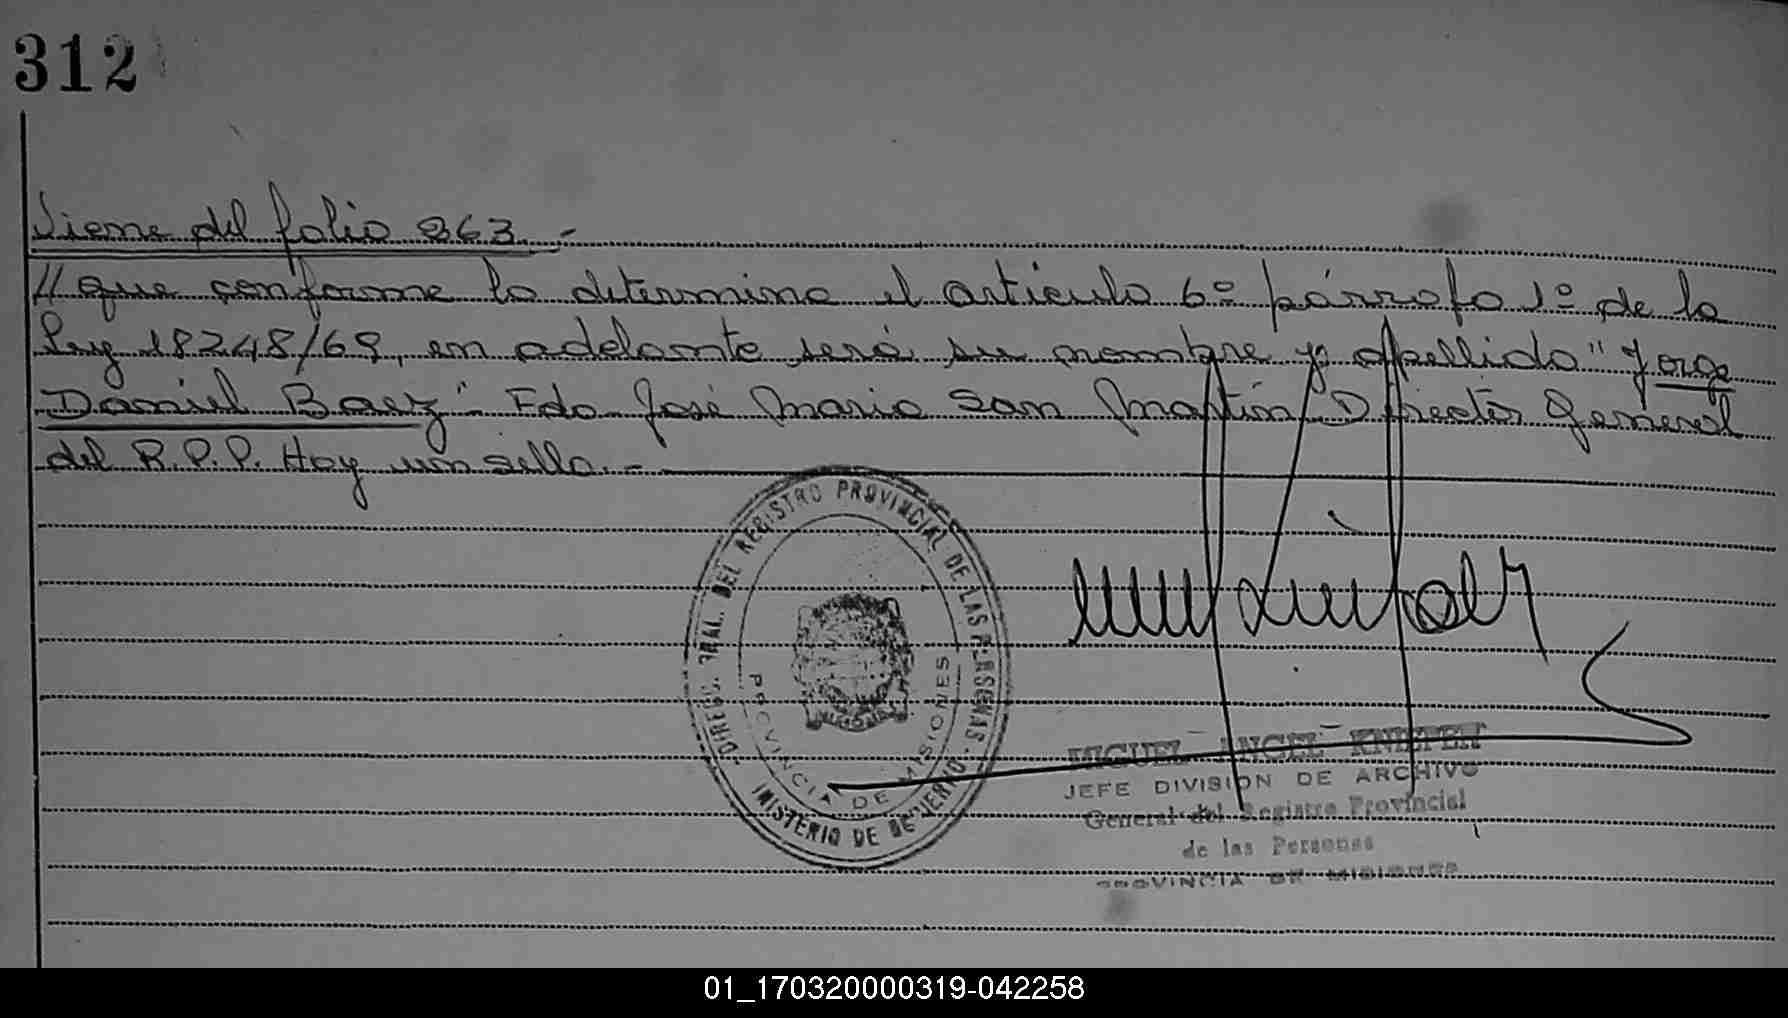 312
Viene del folio 263.-
// que conforme lo determina el artículo 6º párrafo 1º de la
Ley 18248/69, en adelante será su nombre y apellido "Jorge
Daniel Baez" Fdo José Maria San Martín Director General
del R.P.P. Hay un sello.-
DIRECC. GRAL. DEL REGISTRO PROVINCIAL DE LAS PERSONAS
MINISTERIO DE GOBIERNO
PROVINCIA DE MISIONES
MIGUEL ANGEL
JEFE DIVISION DE ARCHIVO
General del Registro Provincial
de las Personas
PROVINCIA DE MISIONES
01_170320000319-042258